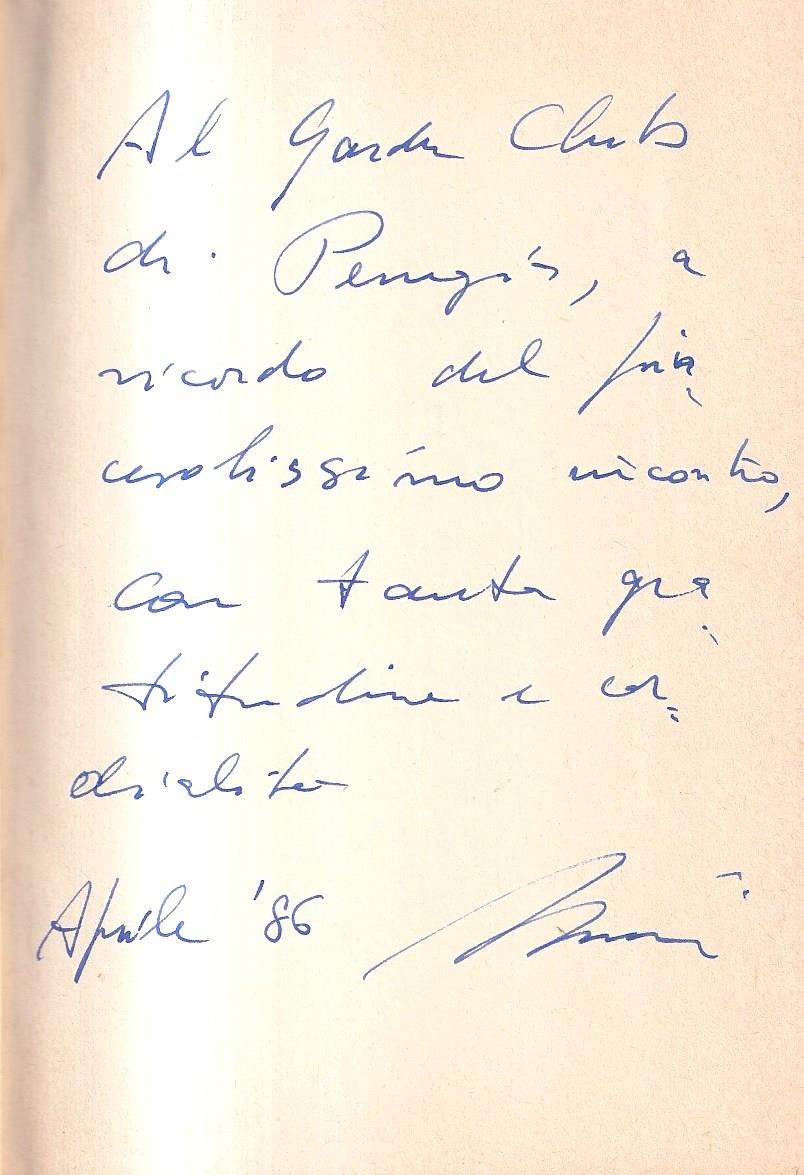 Al Garden Club
di Perugia, a
ricordo del pia=
cevolissimo incontro,
con tanta gra=
titudine e cor=
dialità
Aprile '86